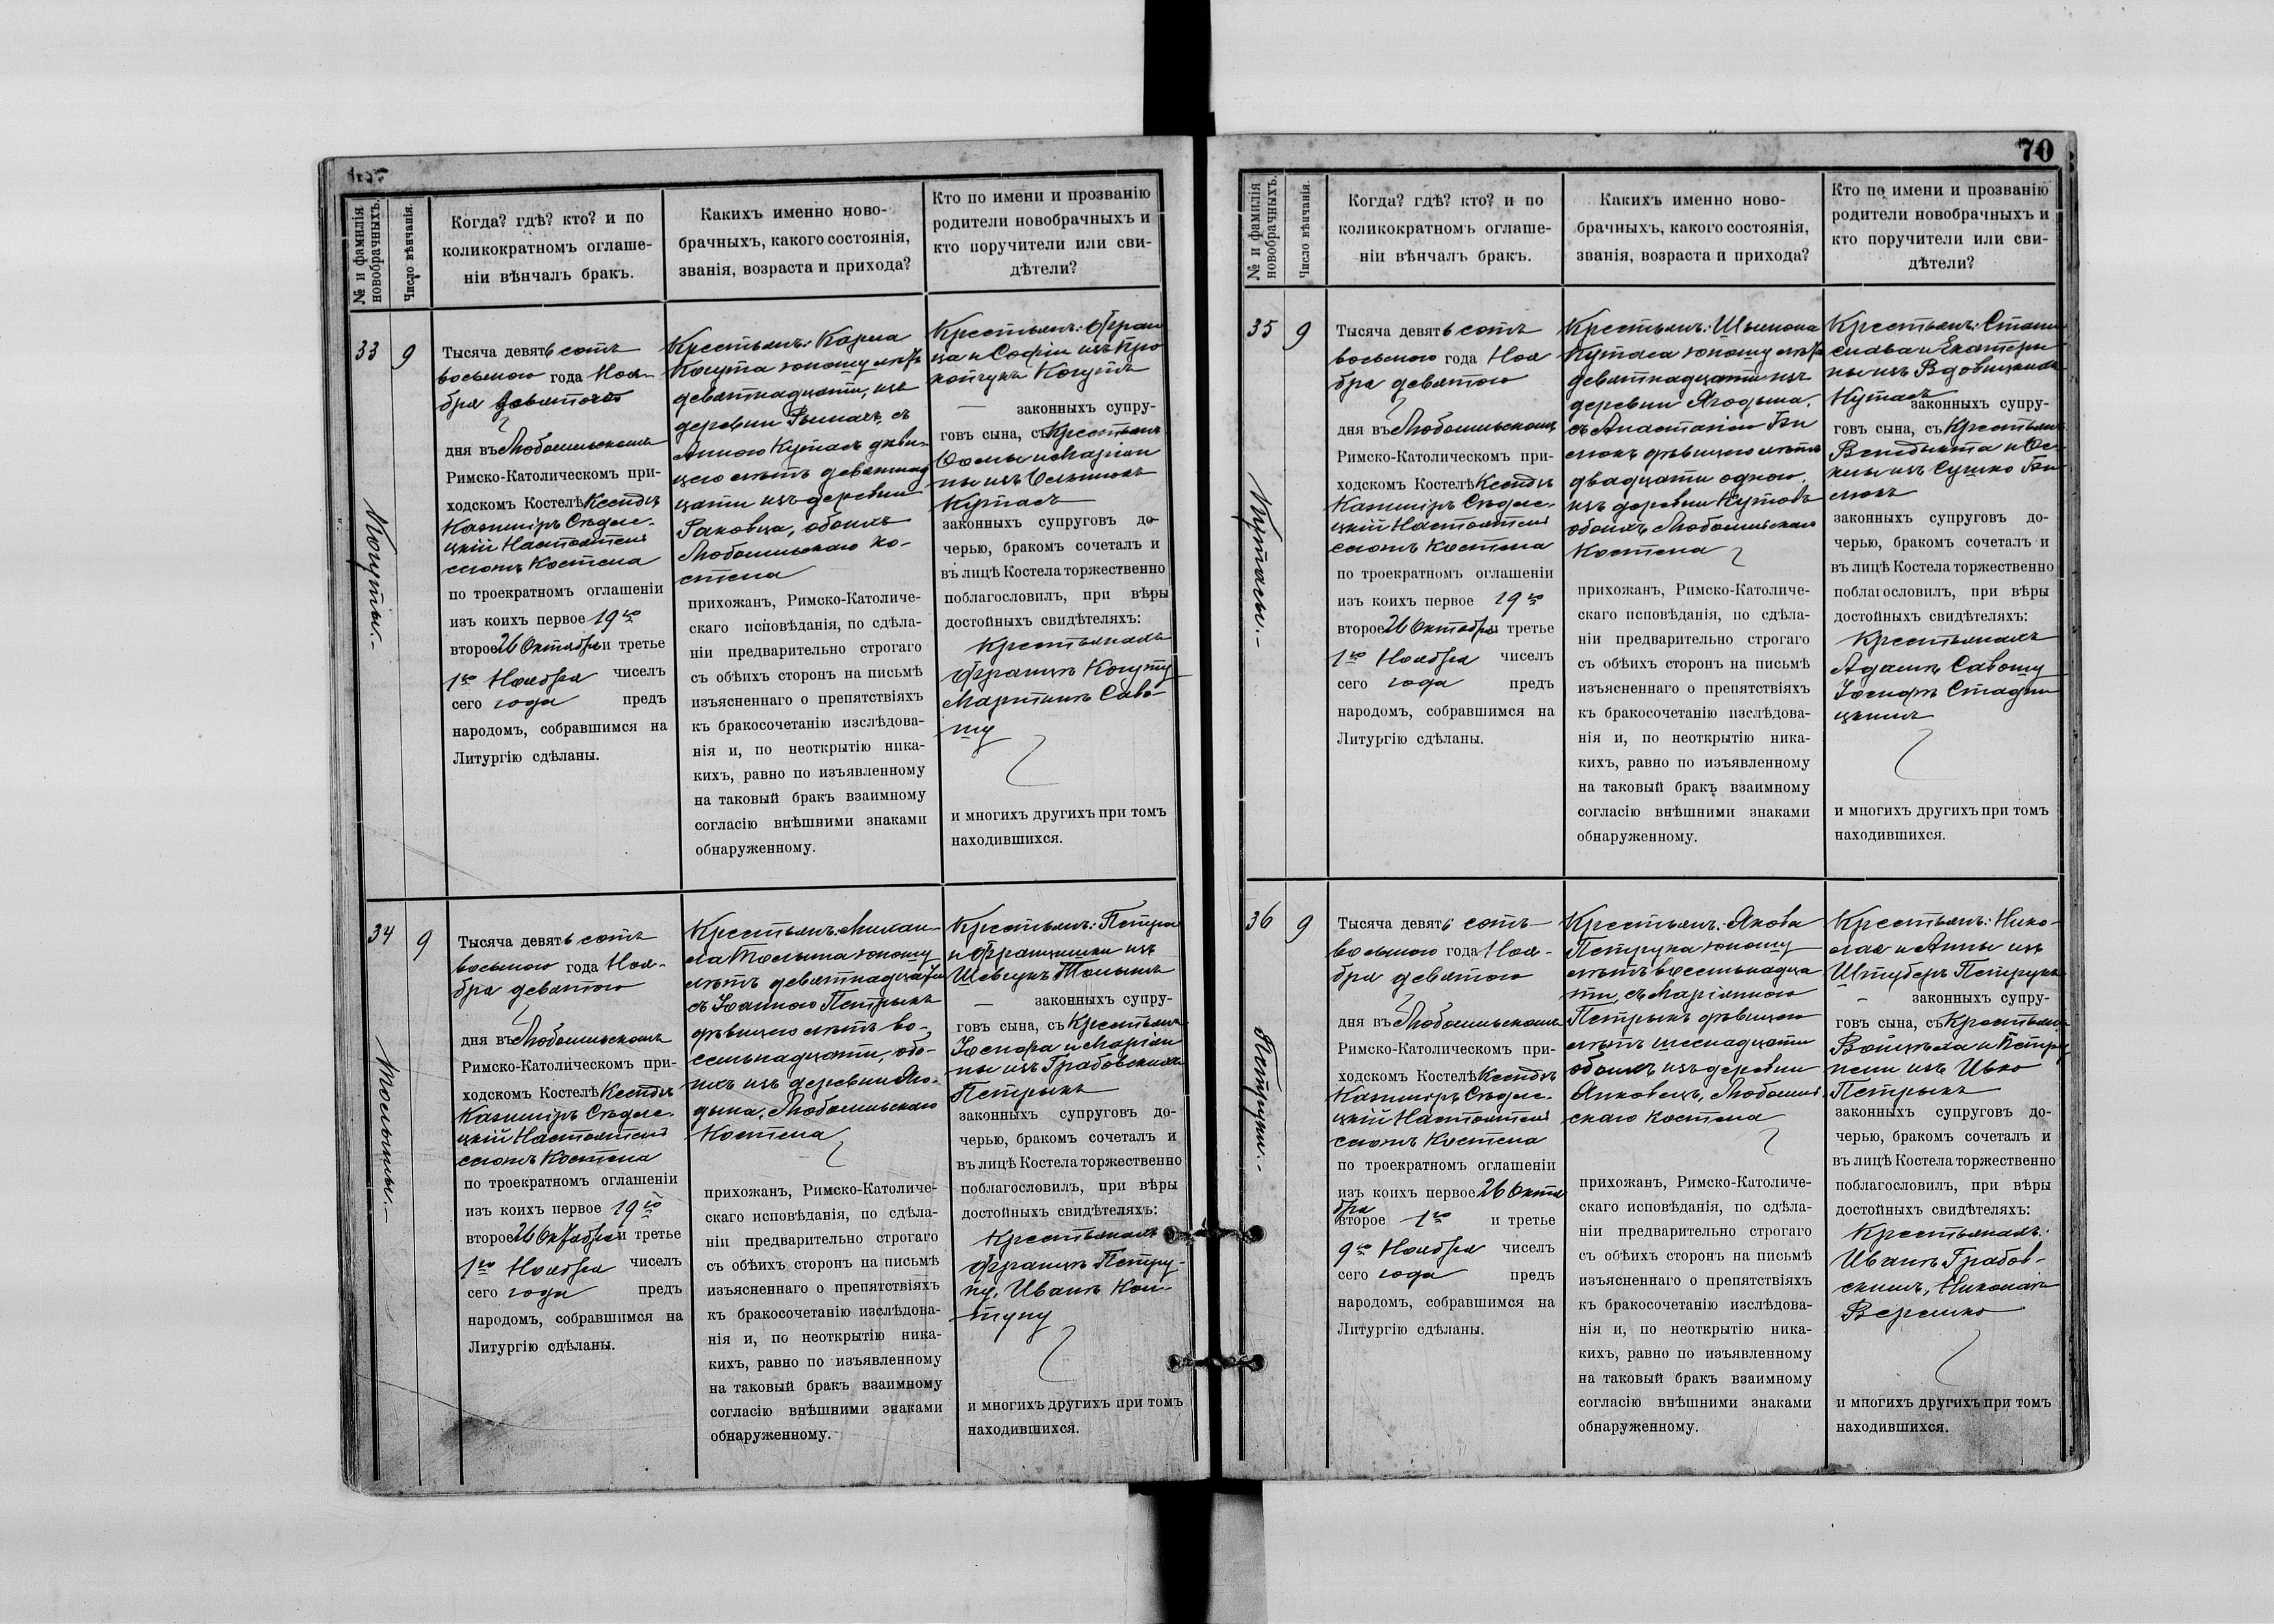 70
№ и фамилія новобрачныхъ.
Число вѣнчанія.
Когда? гдѣ? кто? и по
коликократномъ оглаше-
ніи вѣнчалъ бракъ.
Какихъ именно ново-
брачныхъ, какого состоянія,
званія, возраста и прихода?
Кто по имени и прозванію
родители новобрачныхъ и
кто поручители или сви-
дѣтели?
33
9
Когуты.-
Тысяча девятьсотъ
восьмого года Ноя-
бря девятого
дня въ Любомльскомъ
Римско-Католическомъ при-
ходскомъ Костелѣ Ксендзъ
Казиміръ Сѣдле-
цкій Настоятель
сломъ Костела
по троекратномъ оглашеніи
изъ коихъ первое 19го
второе 26 Октября и третье
1го Ноября чиселъ
сего года предъ
народомъ, собравшимся на
Литургію сдѣланы.
Крестьянъ: Карла
Когута юношу лѣтъ
девятнадцати, изъ
деревни Рымачъ, съ
Анною Кутасъ дѣви-
цею лѣтъ девятнад
цати изъ деревни
Раковца, обоихъ
Любомльскаго ко-
стела
прихожанъ, Римско-Католиче-
скаго исповѣданія, по сдѣла-
ніи предварительно строгаго
съ обѣихъ сторонъ на письмѣ
изъясненнаго о препятствіяхъ
къ бракосочетанію изслѣдова-
нія и, по неоткрытію ника-
кихъ, равно по изъявленному
на таковый бракъ взаимному
согласію внѣшними знаками
обнаруженному.
Крестьянъ: Фран
ца и Софіи изъ Про
копчукъ Когутъ
законныхъ супру-
говъ сына, съ Крестьянъ
Фомы и Маріан
ны изъ
Кутасъ
законныхъ супруговъ до-
черью, бракомъ сочеталъ и
въ лицѣ Костела торжественно
поблагословилъ, при вѣры
достойныхъ свидѣтеляхъ:
Крестьянахъ
Францѣ Когуту
Мартинѣ Саво-
шу
и многихъ другихъ при томъ
находившихся.
34
9
Тысяча девятьсотъ
восьмого года Ноя-
бря девятого
дня въ Любомльскомъ
Римско-Католическомъ при-
ходскомъ Костелѣ Ксендзъ
Казиміръ Сѣдле-
цкій Настоятель
сломъ Костела
по троекратномъ оглашеніи
изъ коихъ первое 19го
второе 26 Октября и третье
1го Ноября чиселъ
сего года предъ
народомъ, собравшимся на
Литургію сдѣланы.
Крестьянъ: Михаи-
ла юношу
лѣтъ девятнадцати
съ Іоанною Петрыкъ
дѣвицею лѣтъ во-
семьнадцати, обо-
ихъ изъ деревни Яго-
дына, Любомльскаго
Костела
прихожанъ, Римско-Католиче-
скаго исповѣданія, по сдѣла-
ніи предварительно строгаго
съ обѣихъ сторонъ на письмѣ
изъясненнаго о препятствіяхъ
къ бракосочетанію изслѣдова-
нія и, по неоткрытію ника-
кихъ, равно по изъявленному
на таковый бракъ взаимному
согласію внѣшними знаками
обнаруженному.
Крестьянъ: Петра
и Францишки изъ
Шевчукъ
законныхъ супру-
говъ сына, съ Крестьянъ
Іосифа и Маріан
ны изъ Грабовскихъ
Петрыкъ
законныхъ супруговъ до-
черью, бракомъ сочеталъ и
въ лицѣ Костела торжественно
поблагословилъ, при вѣры
достойныхъ свидѣтеляхъ:
Крестьянахъ
Францѣ Петру-
ку, Иванѣ Ков-
туну
и многихъ другихъ при томъ
находившихся.
№ и фамилія новобрачныхъ.
Число вѣнчанія.
Когда? гдѣ? кто? и по
коликократномъ оглаше-
ніи вѣнчалъ бракъ.
Какихъ именно ново-
брачныхъ, какого состоянія,
званія, возраста и прихода?
Кто по имени и прозванію
родители новобрачныхъ и
кто поручители или сви-
дѣтели?
35
9
Кутасы.-
Тысяча девятьсотъ
восьмого года Ноя
бря девятого
дня въ Любомльскомъ
Римско-Католическомъ при-
ходскомъ Костелѣ Ксендзъ
Казиміръ Сѣдле-
цкій Настоятель
сломъ Костела
по троекратномъ оглашеніи
изъ коихъ первое 19го
второе 26 Октября и третье
1го Ноября чиселъ
сего года предъ
народомъ, собравшимся на
Литургію сдѣланы.
Крестьянъ: Шымона
Кутаса юношу лѣтъ
девятнадцати изъ
деревни Ягодына,
съ Анастасіею
дѣвицею лѣтъ
двадцати одного,
изъ деревни Кутовъ
обоихъ Любомльскаго
Костела
прихожанъ, Римско-Католиче-
скаго исповѣданія, по сдѣла-
ніи предварительно строгаго
съ обѣихъ сторонъ на письмѣ
изъясненнаго о препятствіяхъ
къ бракосочетанію изслѣдова-
нія и, по неоткрытію ника-
кихъ, равно по изъявленному
на таковый бракъ взаимному
согласію внѣшними знаками
обнаруженному.
Крестьянъ: Стани
слава и Екатери
ны изъ Вдовицкихъ
Кутасъ
законныхъ супру-
говъ сына, съ Крестьянъ
Венедикта и
изъ Сушко
законныхъ супруговъ до-
черью, бракомъ сочеталъ и
въ лицѣ Костела торжественно
поблагословилъ, при вѣры
достойныхъ свидѣтеляхъ:
Крестьянахъ
Адамѣ Савошу
Іосифѣ Стадни
цкимъ
и многихъ другихъ при томъ
находившихся.
36
9
Петруки.-
Тысяча девятьсотъ
восьмого года Ноя-
бря девятого
дня въ Любомльскомъ
Римско-Католическомъ при-
ходскомъ Костелѣ Ксендзъ
Казиміръ Сѣдле-
цкій Настоятель
сломъ Костела
по троекратномъ оглашеніи
изъ коихъ первое 26 Октя
бря
второе 1го и третье
9го Ноября чиселъ
сего года предъ
народомъ, собравшимся на
Литургію сдѣланы.
Крестьянъ: Якова
Петрука юношу
лѣтъ восемьнадца
ти, съ Маріанною
Петрыкъ дѣвицею
лѣтъ шеснадцати
обоихъ изъ деревни
Янковецъ, Любомль
скаго костела
прихожанъ, Римско-Католиче-
скаго исповѣданія, по сдѣла-
ніи предварительно строгаго
съ обѣихъ сторонъ на письмѣ
изъясненнаго о препятствіяхъ
къ бракосочетанію изслѣдова-
нія и, по неоткрытію ника-
кихъ, равно по изъявленному
на таковый бракъ взаимному
согласію внѣшними знаками
обнаруженному.
Крестьянъ: Нико-
лая и Анны изъ
Штуберъ Петрукъ
законныхъ супру-
говъ сына, съ Крестьянъ
Войцѣха и Петру
нели изъ Ивко
Петрыкъ
законныхъ супруговъ до-
черью, бракомъ сочеталъ и
въ лицѣ Костела торжественно
поблагословилъ, при вѣры
достойныхъ свидѣтеляхъ:
Крестьянахъ:
Иванѣ Грабов-
скимъ, Николаѣ
Веремко
и многихъ другихъ при томъ
находившихся.